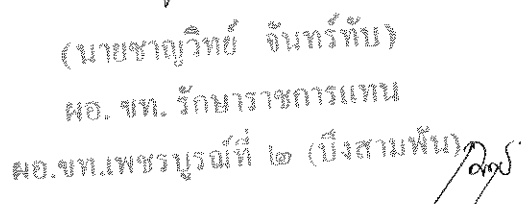 (นายชาญวิทย์ จันทร์ทับ)
ผอ. ขท. รักษาราชการแทน
ผอ.ขท.เพชรบูรณ์ที่ ๒ (บึงสามพัน)